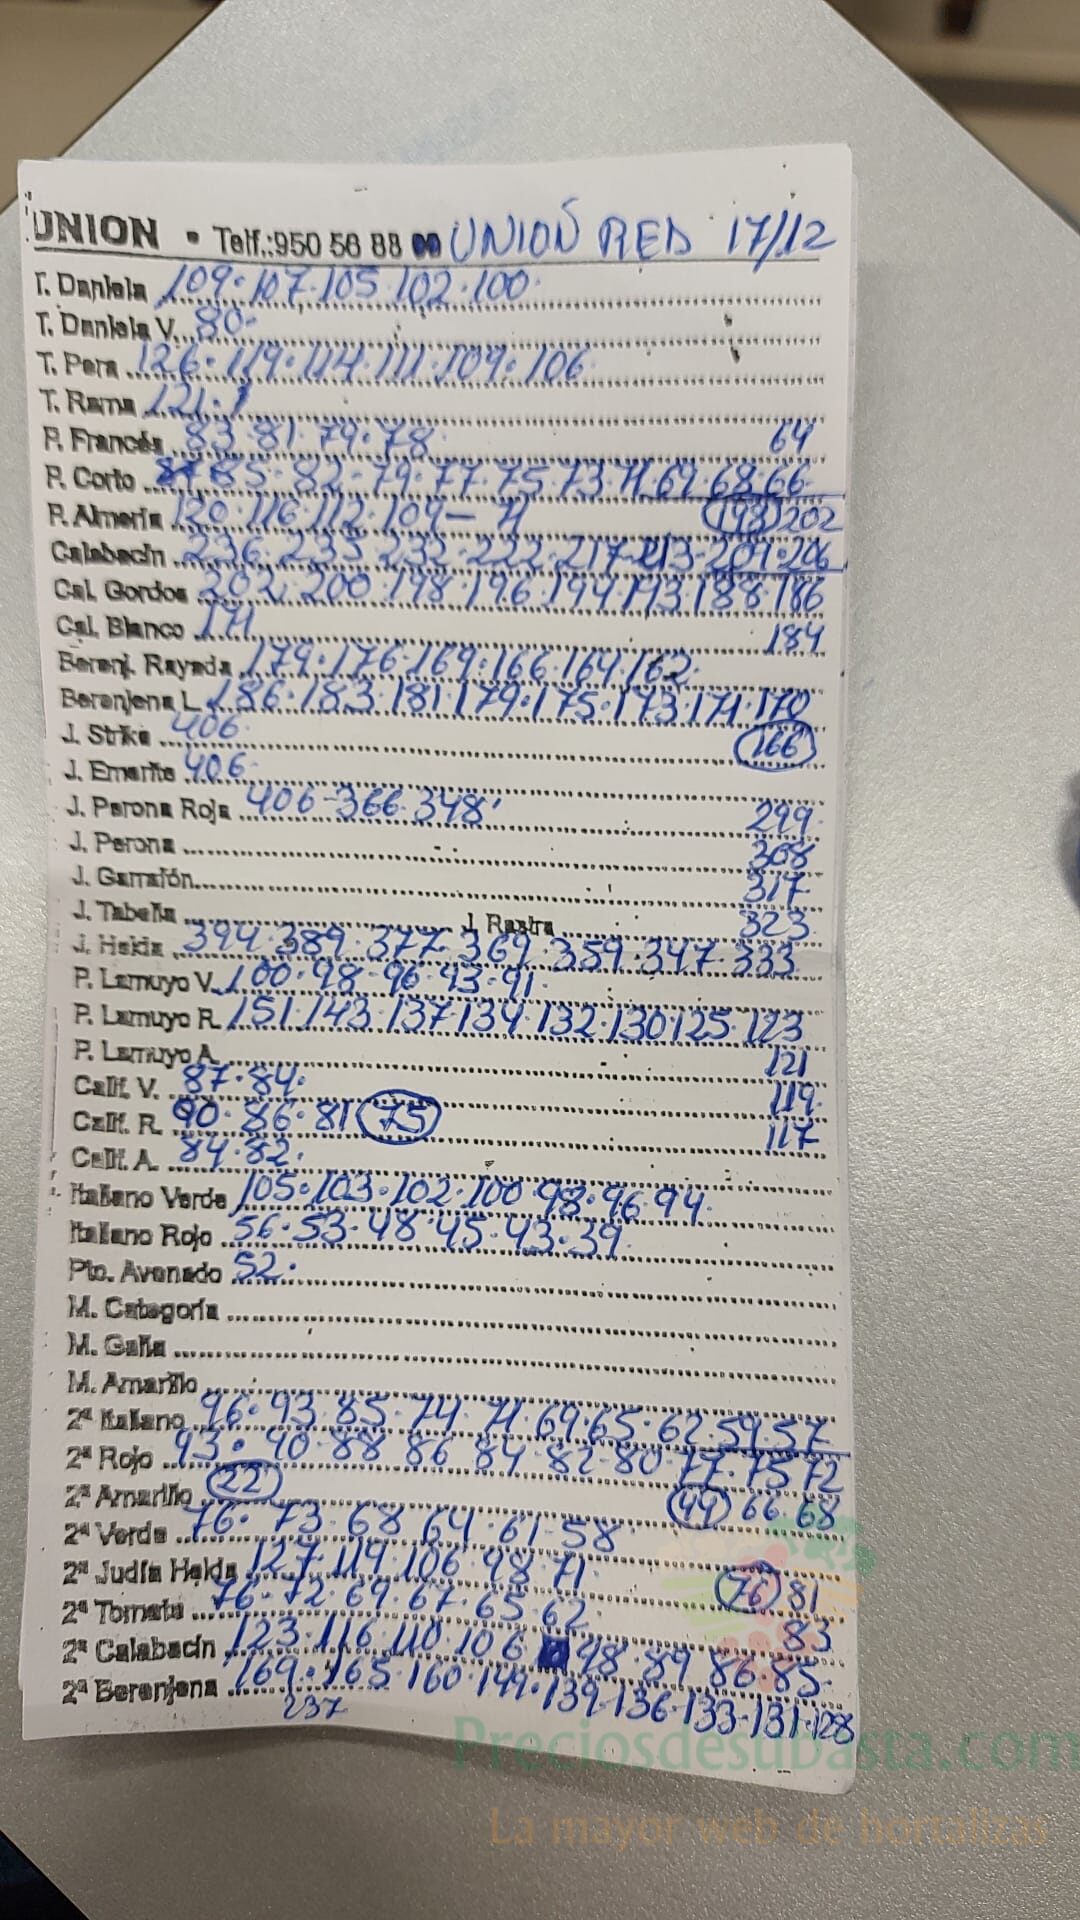 UNION • Telf.:950 56 88 00 UNION RED 17/12
T. Daniela 109·107·105·102·100·
T. Daniela V. 80·
T. Pera 126·119·114·111·109·106·
T. Rama 121·
P. Francés 83·81·79·78· 64
P. Corto 85·82-79·77·75·73·71·69·68·66
P. Almería 120·116·112·109-71 198 202
Calabacín 236·235·232·222·217·213·209·206
Cal. Gordos 202·200·198·196·194·193·188·186
Cal. Blanco 171 184
Berenj. Rayada 179·176·169·166·164·162·
Berenjena L. 186·183·181·179·175·173·171·170
J. Strike 406· 166
J. Emerite 406·
J. Perona Roja 406-366·348 299
J. Perona 308
J. Garrafón 317
J. Tabella J. Rastra 323
J. Helda 394·389·377·369·359·347·333
P. Lamuyo V. 100·98·96·93·91·
P. Lamuyo R. 151·143·137·134·132·130·125·123
P. Lamuyo A. 121
Calif. V. 87·84· 119
Calif. R. 90·86·81 75 117
Calif. A. 84·82·
Italiano Verde 105·103·102·100·98·96·94·
Italiano Rojo 56·53·48·45·43·39·
Pto. Avenado 52·
M. Categoría
M. Galia
M. Amarillo
2ª Italiano 96·93·85·74·71·69·65·62·59·57
2ª Rojo 93·90·88·86·84·82·80·77·75·72
2ª Amarillo 22 44 66 68
2ª Verde 76·73·68·64·61-58
2ª Judía Helda 127·119·106·98·71· 76 81
2ª Tomate 76·72·69·67·65·62· 83
2ª Calabacín 123·116·110·106 98·89·86·85·
2ª Berenjena 169·165·160·149·139-136-133-131·128
237
Preciosdesubasta.com
La mayor web de hortalizas